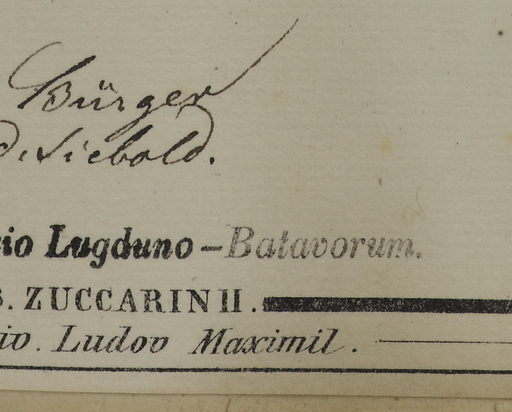 Bürger
d. Siebold.
io Lugduno-Batavorum.
. ZUCCARINII.
io. Ludov Maximil.